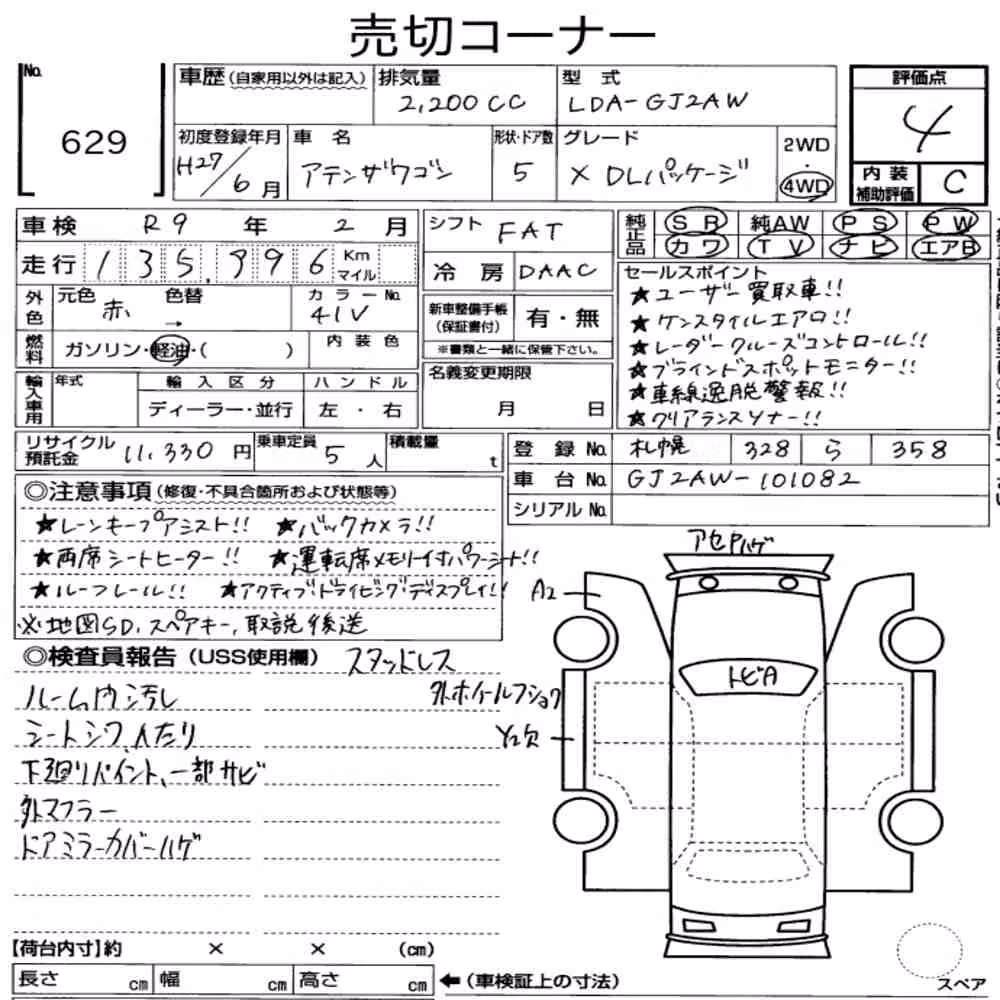 売切コーナー
No.
629
車歴(自家用以外は記入)
排気量
2,200CC
型式
LDA-GJ2AW
評価点
4
初度登録年月
H27/6月
車名
アテンザワゴン
形状・ドア数
5
グレード
X DLパッケージ
2WD
・
4WD
内装
補助評価
C
車検 R9年 2月
走行 135,996 Km
マイル
シフト FAT
冷房 DAAC
純正品
SR 純AW PS PW
カワ TV ナビ エアB
外色
元色 赤
色替 →
カラーNo.
41V
燃料
ガソリン・軽油・( )
内装色
新車整備手帳
(保証書付)
有・無
※書類と一緒に保管下さい。
セールスポイント
★ユーザー買取車!!
★ケンスタイルエアロ!!
★レーダークルーズコントロール!!
★ブラインドスポットモニター!!
★車線逸脱警報!!
★クリアランスソナー!!
輸入車用
年式
輸入区分
ディーラー・並行
ハンドル
左・右
名義変更期限
月 日
リサイクル
預託金
11,330円
乗車定員
5人
積載量
t
登録No. 札幌 328 ら 358
車台No. GJ2AW-101082
シリアルNo.
◎注意事項(修復・不具合箇所および状態等)
★レーンキープアシスト!! ★バックカメラ!!
★両席シートヒーター!! ★運転席メモリー付パワーシート!!
★ルーフレール!! ★アクティブドライビングディスプレイ!!
※地図SD、スペアキー、取説後送
◎検査員報告(USS使用欄) スタッドレス
ルーム内汚れ
外ホイールフショク
シートシワ、ヘたり
下廻りペイント、一部サビ
外マフラー
ドアミラーカバーハゲ
アセPハゲ
A2
トビA
Y2欠
【荷台内寸】約 × × (cm)
長さ cm 幅 cm 高さ cm
←(車検証上の寸法)
スペア